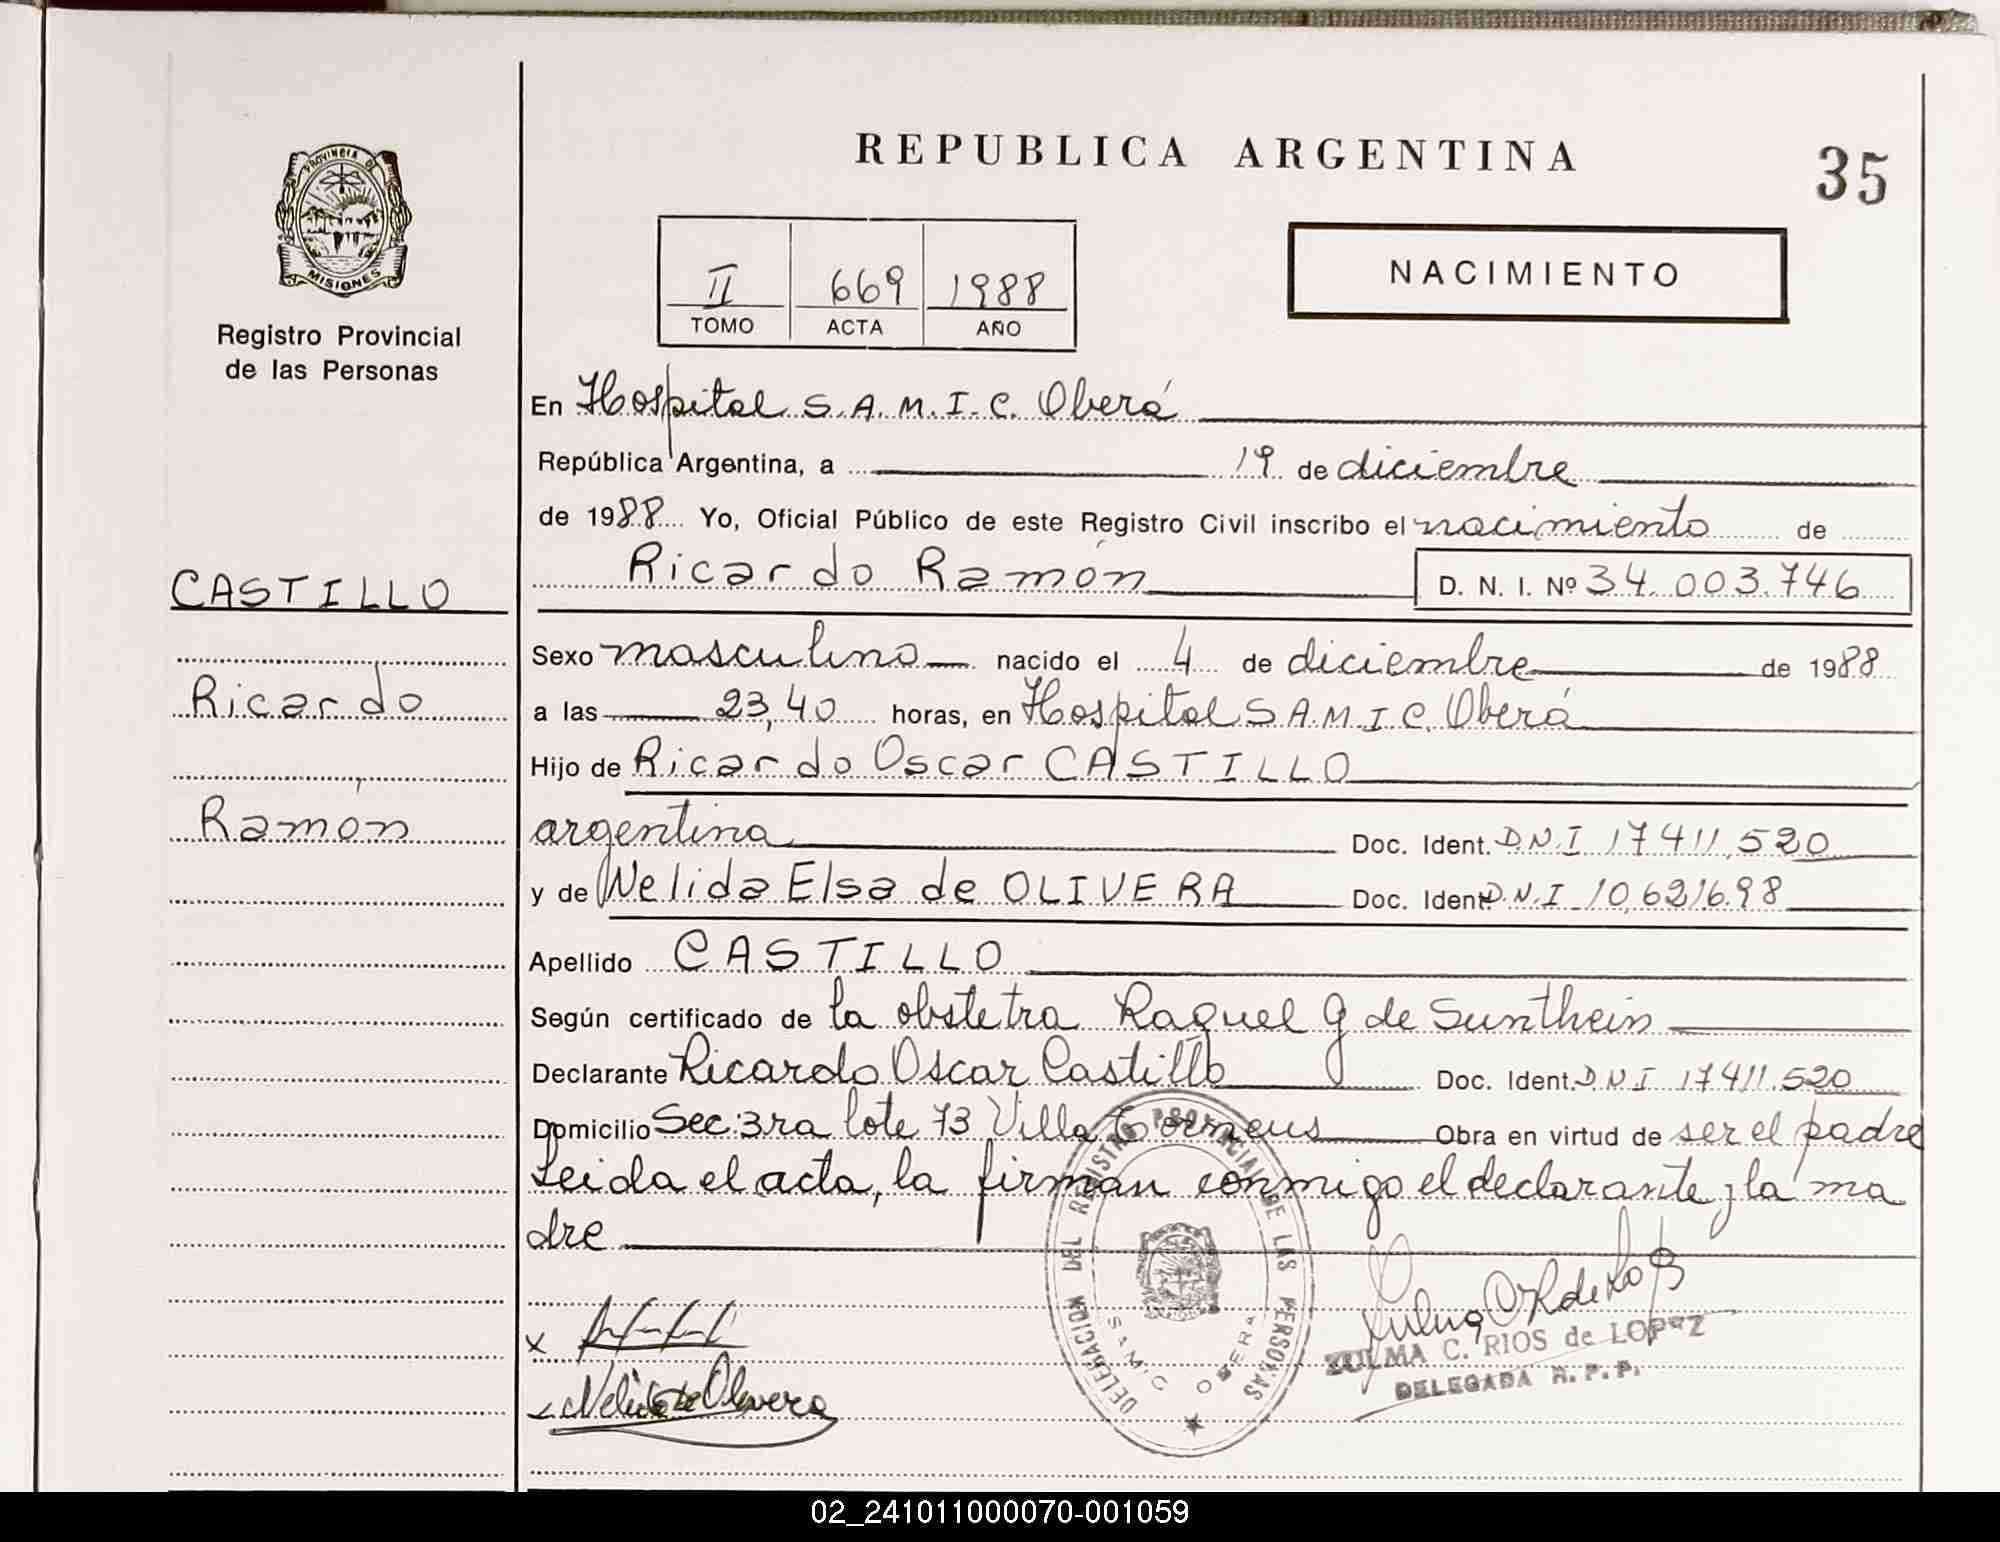 REPUBLICA ARGENTINA
35
PROVINCIA DE
MISIONES
Registro Provincial
de las Personas
II 669 1988
TOMO ACTA AÑO
NACIMIENTO
En Hospital S.A.M.I.C. Oberá
República Argentina, a 19 de diciembre
de 1988 Yo, Oficial Público de este Registro Civil inscribo el nacimiento de
Ricardo Ramón D. N. I. Nº 34.003.746
CASTILLO
Ricardo
Ramón
Sexo masculino nacido el 4 de diciembre de 1988
a las 23,40 horas, en Hospital S A.M.I C. Oberá
Hijo de Ricardo Oscar CASTILLO
argentina Doc. Ident. D.N.I 17411,520
y de Nelida Elsa de OLIVERA Doc. Ident D.N.I 10,621698
Apellido CASTILLO
Según certificado de la obstetra Raquel G de Sunthein
Declarante Ricardo Oscar Castillo Doc. Ident. D N I 17411.520
Domicilio Sec: 3ra lote 73 Villa Obra en virtud de ser el padre
Leida el acta, la firman conmigo el declarante y la ma
dre
DELEGACION DEL REGISTRO PROVINCIAL DE LAS PERSONAS
SAMIC OBERA
x
Nelida de Olivera
ZULMA C. RIOS de LOPEZ
DELEGADA R. P. P.
02_241011000070-001059